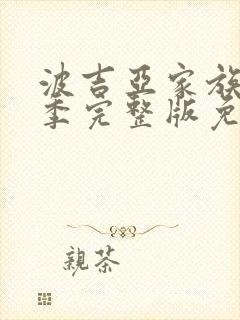 波吉亚家族
季完整版免
親茶